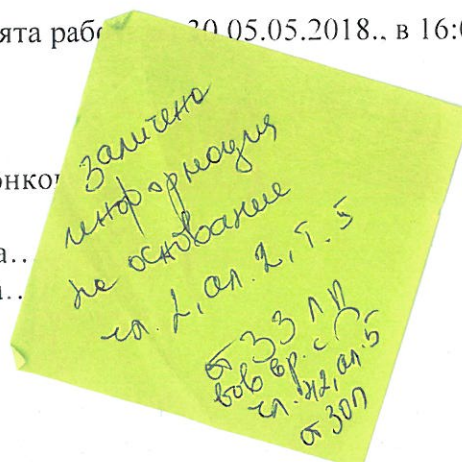 ята раб 30.05.05.2018., в 16:0
заличена
информация
онко
на основание
а..
чл. 2, ал. 2, т. 5
а..
от ЗЗЛД
във вр. с
чл. 42, ал. 5
от ЗОП